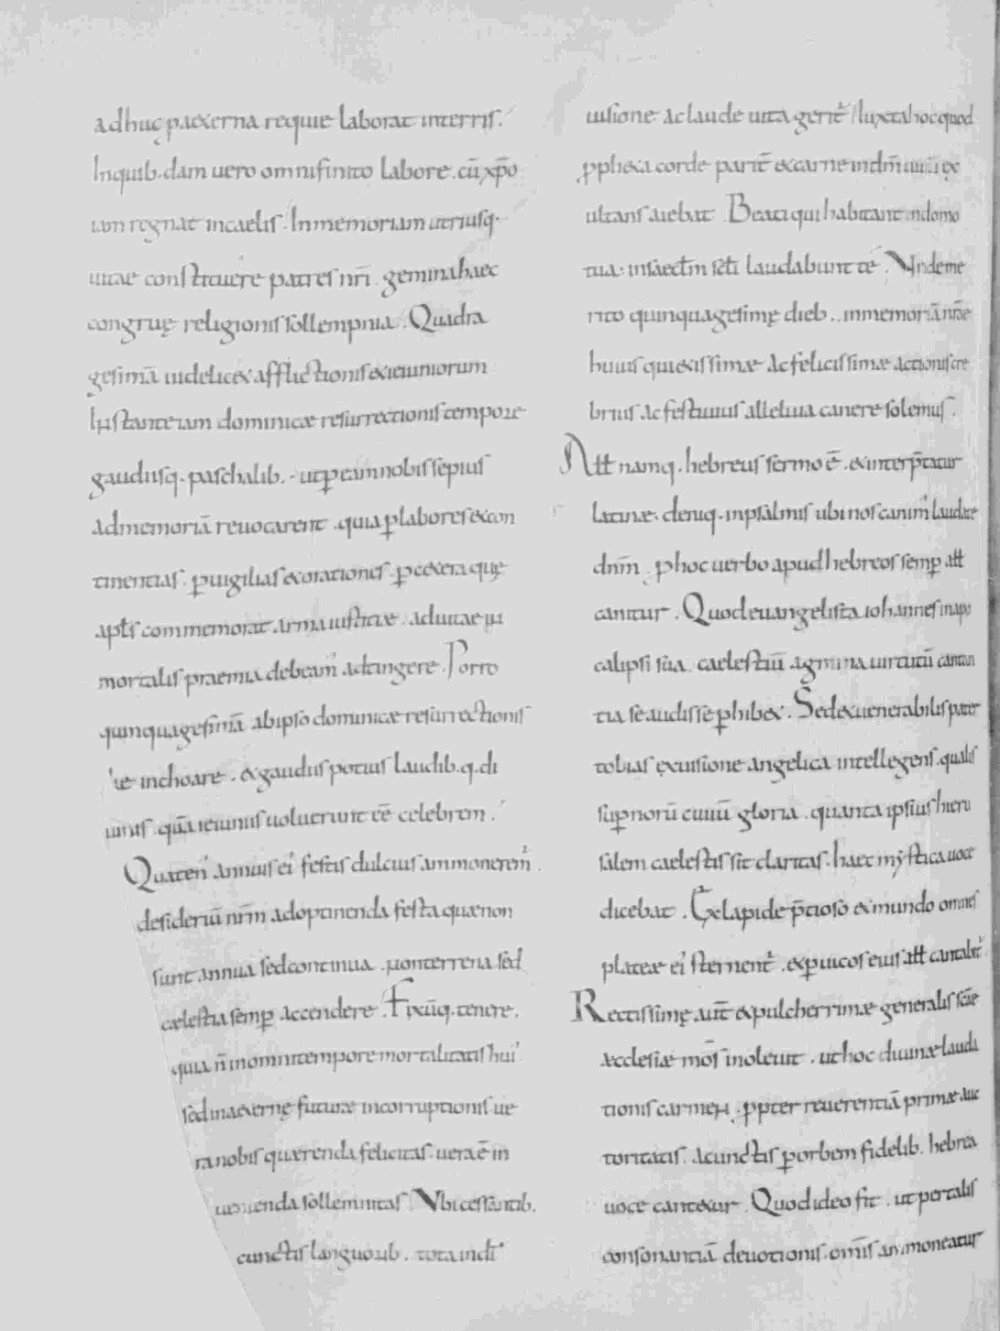 adhuc pro aeterna requie laborat interris.
Inquib·dam uero omnifinito labore .cū xp̄o
iam regnat incaelis . Inmemoriam utriusq·
uitae constituere patres nr̄i . geminahaec
congruę religionis sollempnia . Quadra
gesimā uidelicet afflictionis etieiuniorum
Instante iam dominicæ resurrectionis tempore
gaudiisq· paschalib·. utp̱eamnobis sepius
admemoriā reuocarent .quia p̱labores etcon
tinentias . p̱uigilias etorationes . p̱cetera quę
apt̄s commemorat arma iustitiæ . aduitae im
mortalis praemia debeam' adtingere . Porro
quinquagesimā abipso dominicæ resurrectionis
die inchoare . etgaudiis potius laudib·q· di
uinis .quā ieiuniis uoluerunt eē celebrem .
Quaten' annuis ei' festis dulcius ammonerem' .
desideriū nr̄m adoptinenda festa quænon
sunt annua sedcontinua . nonterrena sed
cælestia semp̱ accendere . Fixūq· tenere .
quia n̄ inomnitempore mortalitatis hui'
sed inaeternę futuræ incorruptionis ue
ra nobis quærenda felicitas . uera ē in
uenienda sollemnitas Vbicessantib·
cunctis languorib· . tota indi
uisione aclaude uita gerit̄ / Iuxtahocquod
p̱pheta corde parit̄ etcarne indm̄ uiuū ex
ultans aiebat . Beati quihabitant indomo
tua . insaeclm̄ scl̄i laudabunt te . Vndeme
rito quinquagesimę dieb·. inmemoriā nr̄ae
huius quietissimæ acfelicissimæ actionis cre
brius acfestiuius alleluia canere solemus .
All̄ namq· hebreus sermo ē . etinterp̄tatur
latinæ . deniq· inpsalmis ubi nos canim' laudate
dn̄m . p̱hoc uerbo apudhebreos semp̱ all̄
canitur . Quodeuangelista iohannes inapo
calipsi sua caelestiū agmina uirtutū cantan
tia se audisse p̱hibet . Sedetuenerabilis pater
tobias exuisione angelica intellegens . qualis
sup̱norū ciuiū gloria . quanta ipsius hieru
salem caelestis sit claritas . haec mystica uoce
dicebat . Exlapide p̄tioso etmundo omnes
plateæ ei' sternent̄ . etp̱uicos eius all̄ cantabit̄
Rectissimę aut̄ etpulcherrimæ generalis scāe
æcclesiæ mos inoleuit . uthoc diuinælauda
tionis carmen . p̱pter reuerentiā primæ auc
toritatis . acunctis p̱orbem fidelib· hebrea
uoce cantetur . Quodideo fit . ut pertalis
consonantiā deuotionis . om̄is ammoneatur